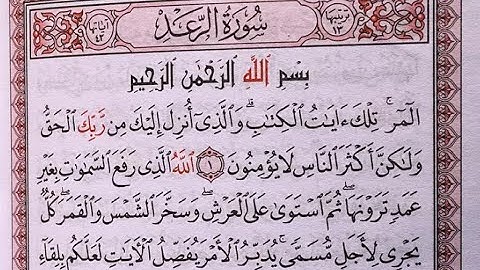 ترتيبها ١٣ سُورَةُ الرَّعْدِ آياتها ٤٣
بِسْمِ اللَّهِ الرَّحْمَٰنِ الرَّحِيمِ
الٓمٓرۚ تِلْكَ ءَايَٰتُ الْكِتَٰبِۗ وَالَّذِىٓ أُنزِلَ إِلَيْكَ مِن رَّبِّكَ الْحَقُّ
وَلَٰكِنَّ أَكْثَرَ النَّاسِ لَا يُؤْمِنُونَ ١ اللَّهُ الَّذِى رَفَعَ السَّمَٰوَٰتِ بِغَيْرِ
عَمَدٍ تَرَوْنَهَاۖ ثُمَّ اسْتَوَىٰ عَلَى الْعَرْشِۖ وَسَخَّرَ الشَّمْسَ وَالْقَمَرَۖ كُلٌّ
يَجْرِى لِأَجَلٍ مُّسَمًّىۚ يُدَبِّرُ الْأَمْرَ يُفَصِّلُ الْآيَٰتِ لَعَلَّكُم بِلِقَآءِ